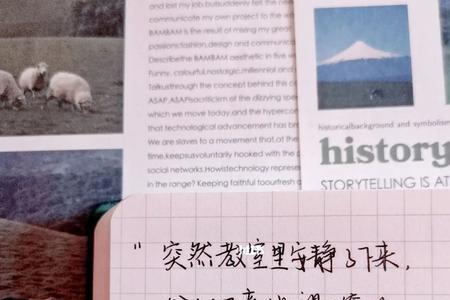 and lost my job,butsuddenly felt the need
communicate my own project to the w
BAMBAM is the result of mixing my great
passions:fashion,design and communica
Describethe BAMBAM aesthetic in five w
Funny, colourful,nostalgic,millennial and
Talkusthrough the concept behind this c
ASAP.ASAPisacriticism of the dizzying spe
which we move today,and the hyperconn
that technological advancement has br
We are slaves to a movement that,at the
time,keepsusvoluntarily hooked with the p
social networks.Howistechnology represer
in the range? Keeping faithful toourfresh a
historicalbackground and symbolism
history
STORYTELLING IS AT
"突然教室里安静了下来,